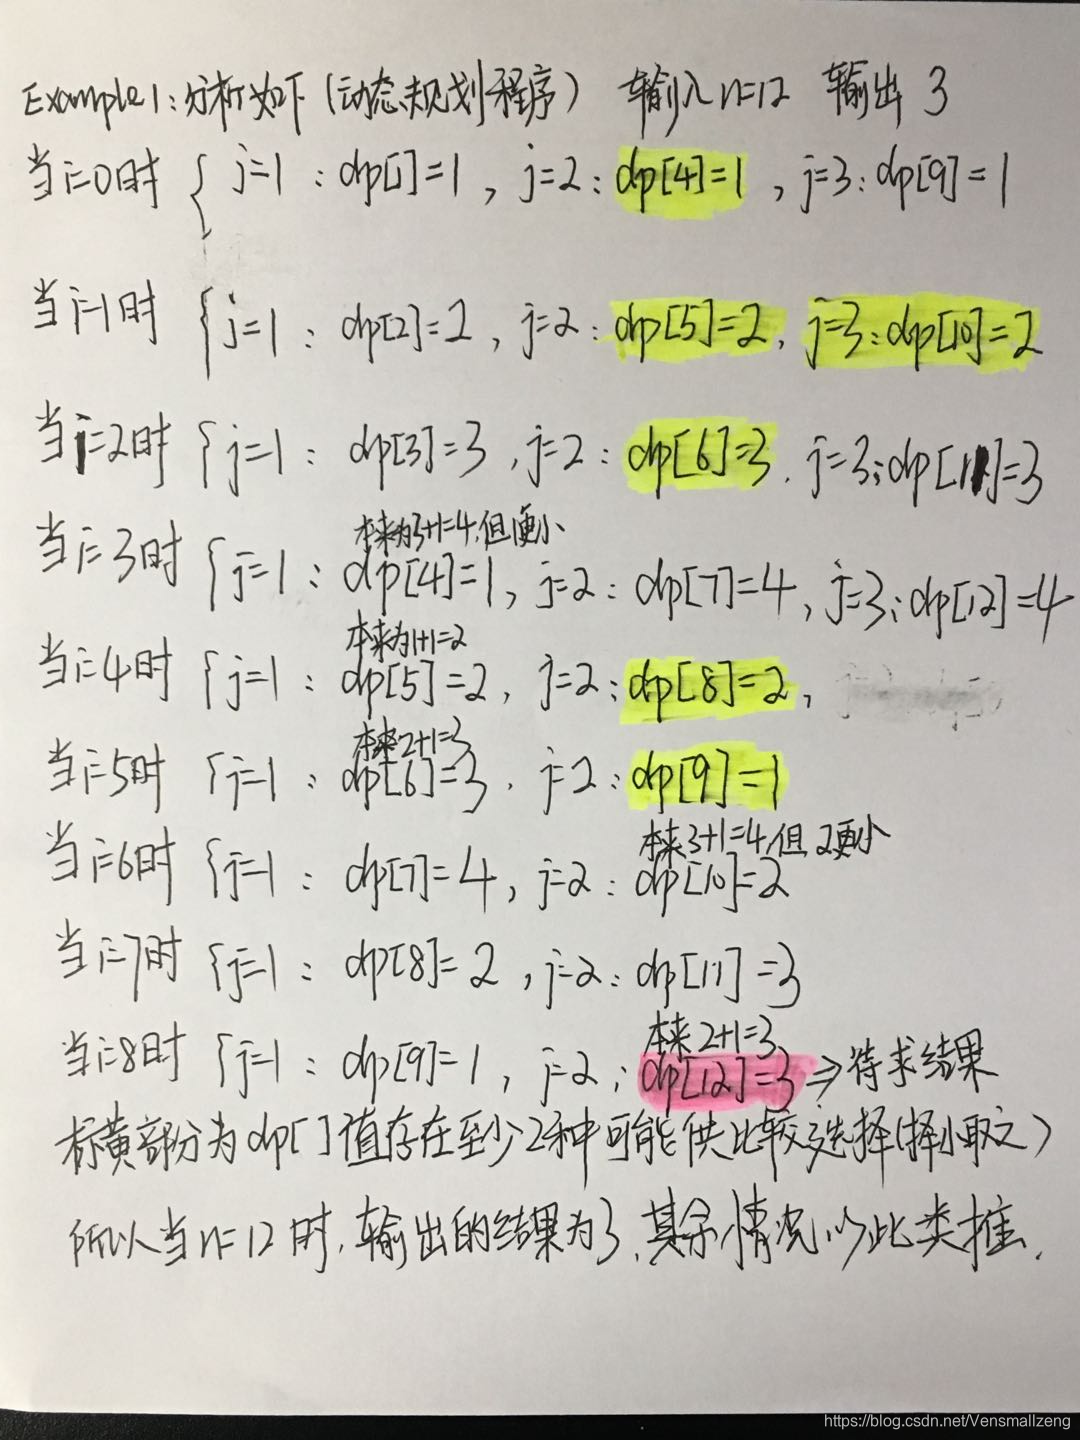 Example1:分析如下(动态规划程序) 输入n=12 输出3
当i=0时 { j=1 : dp[1]=1 , j=2 : dp[4]=1 , j=3 : dp[9]=1
当i=1时 { j=1 : dp[2]=2 , j=2 : dp[5]=2 , j=3 : dp[10]=2
当i=2时 { j=1 : dp[3]=3 , j=2 : dp[6]=3 . j=3 ; dp[11]=3
本来为3+1=4,但1更小
当i=3时 { j=1 : dp[4]=1 , j=2 : dp[7]=4 , j=3 ; dp[12]=4
本来为1+1=2
当i=4时 { j=1 : dp[5]=2 , j=2 ; dp[8]=2 ,
本来2+1=3
当i=5时 { j=1 : dp[6]=3 . j=2 : dp[9]=1
本来3+1=4,但2更小
当i=6时 { j=1 : dp[7]=4 , j=2 : dp[10]=2
当i=7时 { j=1 : dp[8]=2 , j=2 : dp[11]=3
本来2+1=3
当i=8时 { j=1 : dp[9]=1 , j=2 ; dp[12]=3 ⇒待求结果
标黄部分为dp[]值存在至少2种可能供比较选择(择小取之)
所以当n=12时,输出的结果为3,其余情况以此类推.
https://blog.csdn.net/Vensmallzeng